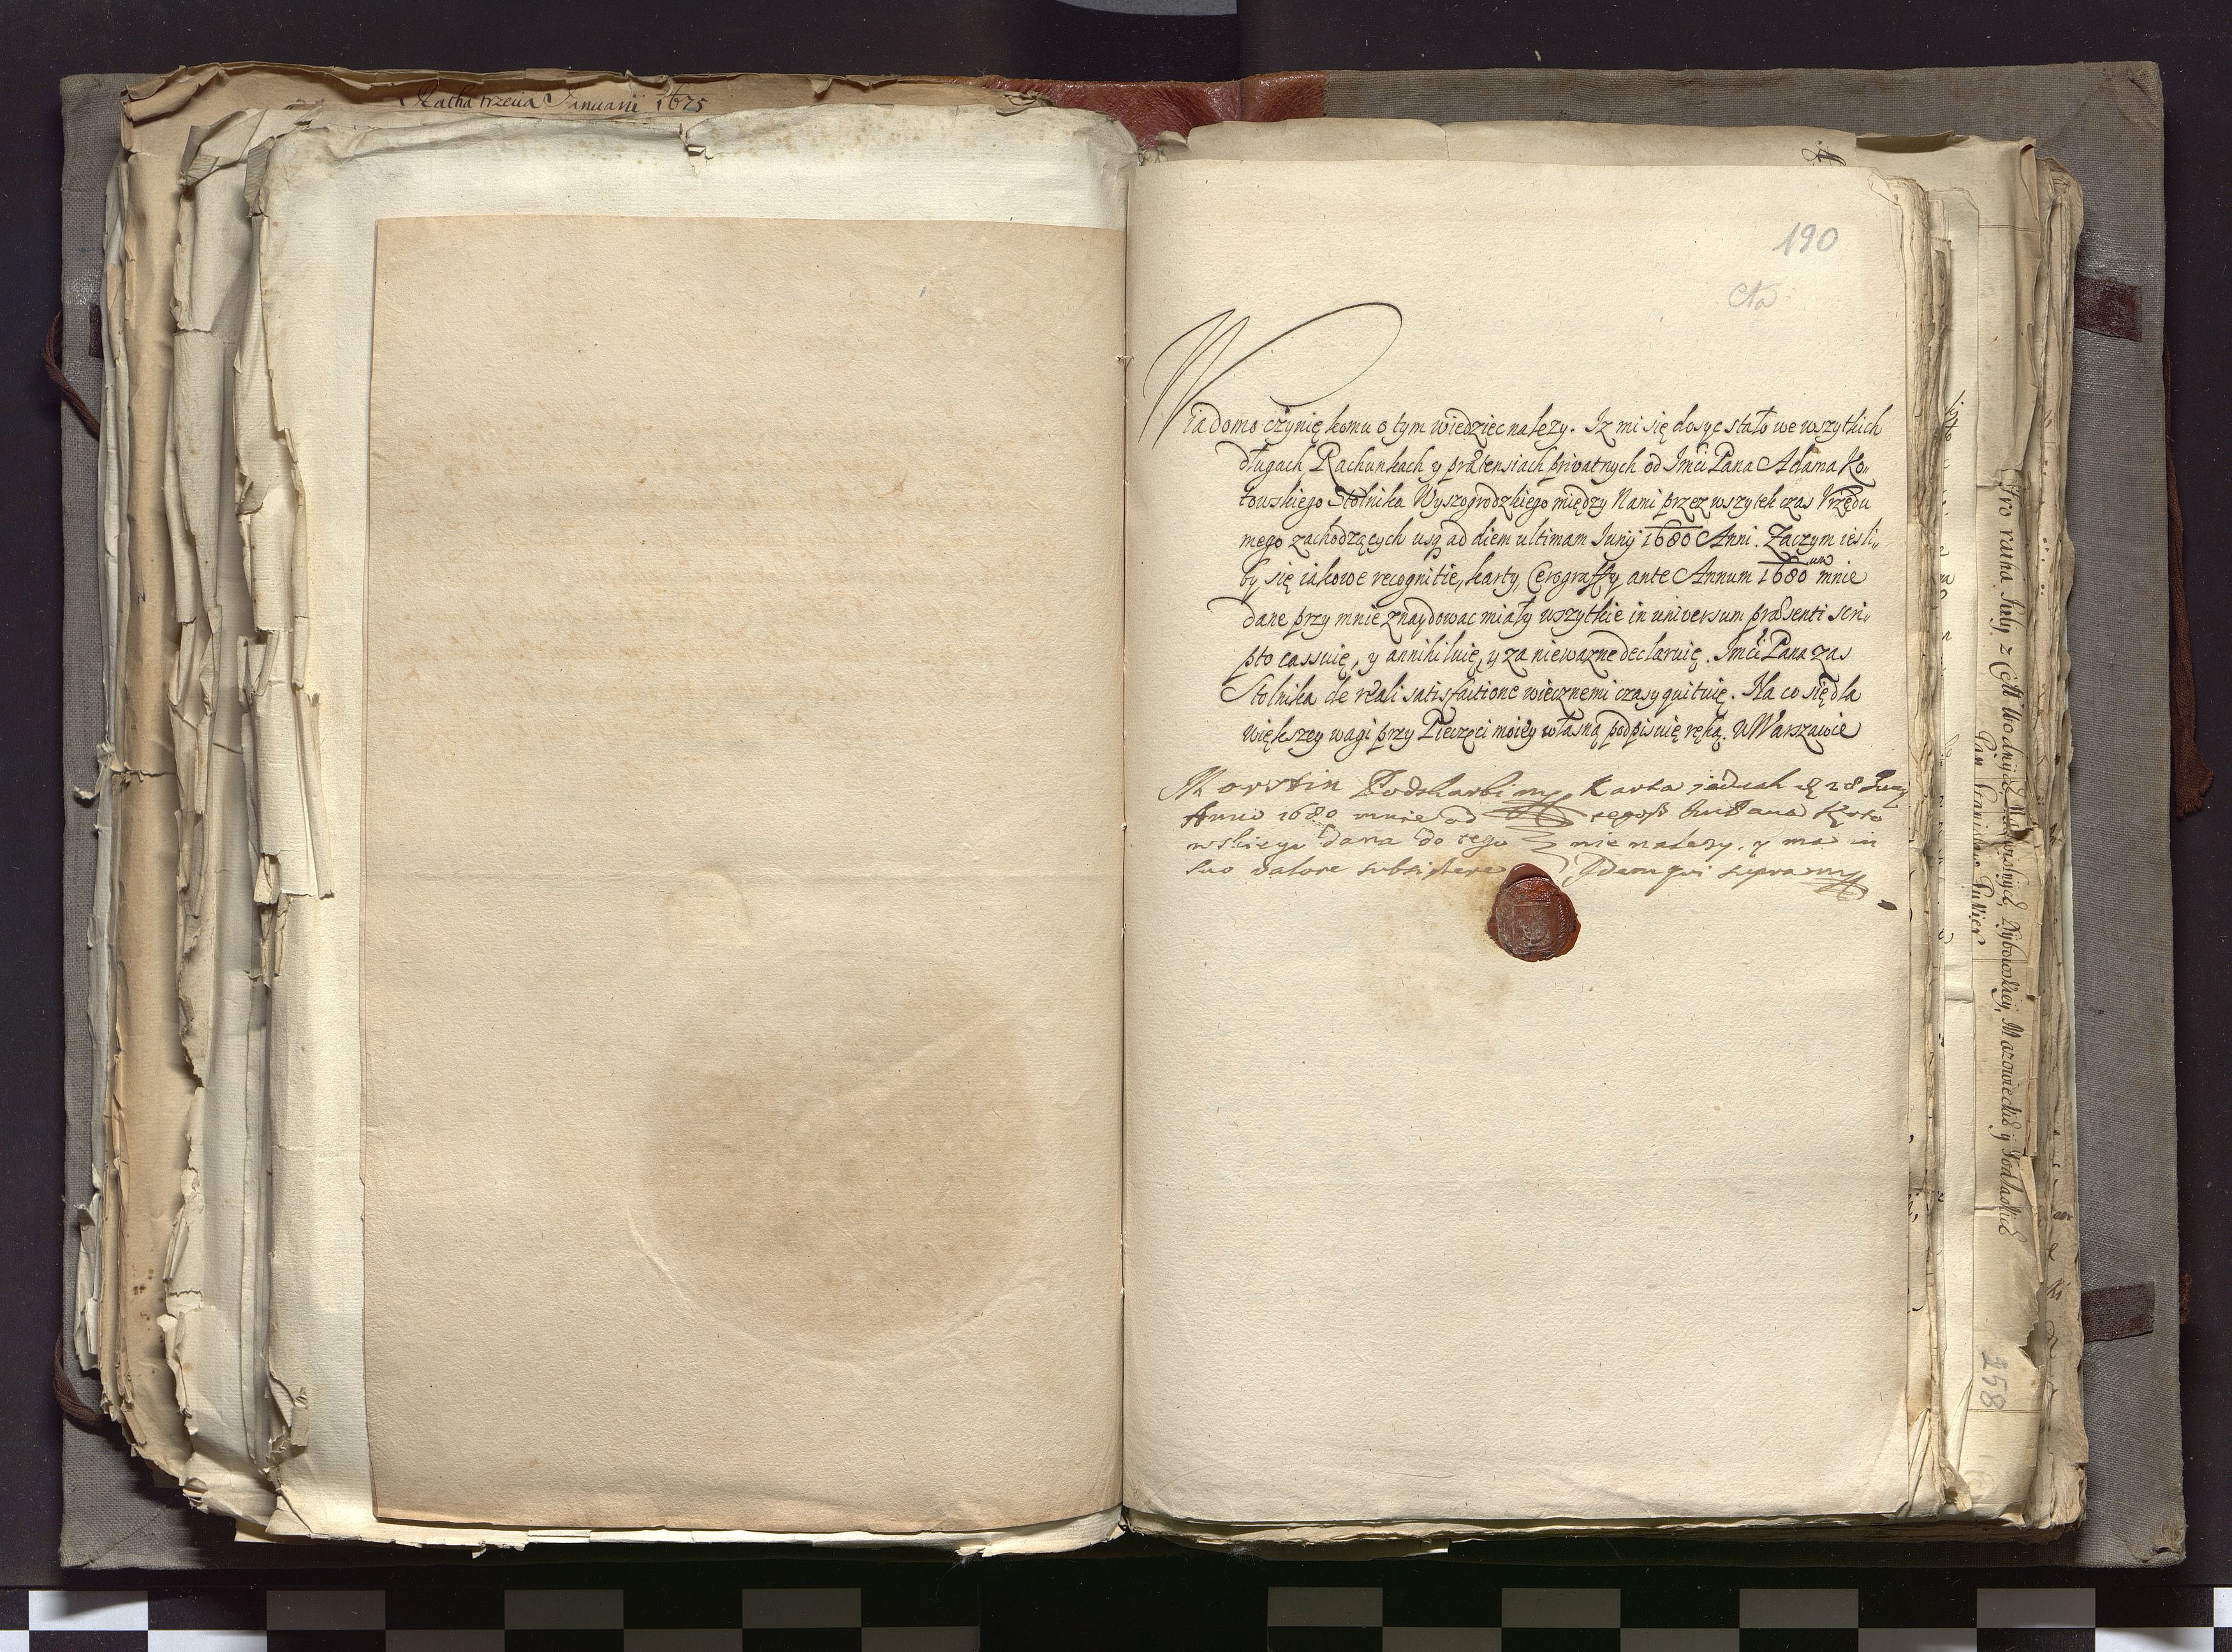 Ratha trzecia Januarii 1675
190
Cło
Wiadomo czynię komu o tym wiedziec nalezy. Iz mi się dosyc stało we wszytkich
długach Rachunkach y prætensiach privatnych od Imci Pana Adama Ko„
towskiego Stolnika Wyszogrodzkiego między Nami przez wszytek czas Vrzędu
mego zachodzących usq ad diem ultimam Junij 1680 Anni. Zaczym iesli„
by się iakowe recognitie, karty, Cerograffy, ante Annum 1680 mnie
dane przy mnie znaydowac miały wszytkie in universum præsenti scri„
pto cassuię, y annihiluię, y za niewazne declaruię. Imci Pana zas
Stolnika de reali satisfactione wiecznemi czasy quituię. Na co się dla
większey wagi przy Pieczęci moiey własną podpisuię ręką. w Warszawie
Morstin Podskarbi mp Karta jednak 28 Junij
Anno 1680 mnie od tegoß Pana Koto
wskiego dana do tego nie nalezy, y ma in
suo valore subsistere Idem qui supra mp
Pro ratha July z Ceł Wodnych Mazowieckich y Podlaskich
Pan Stanisław
258